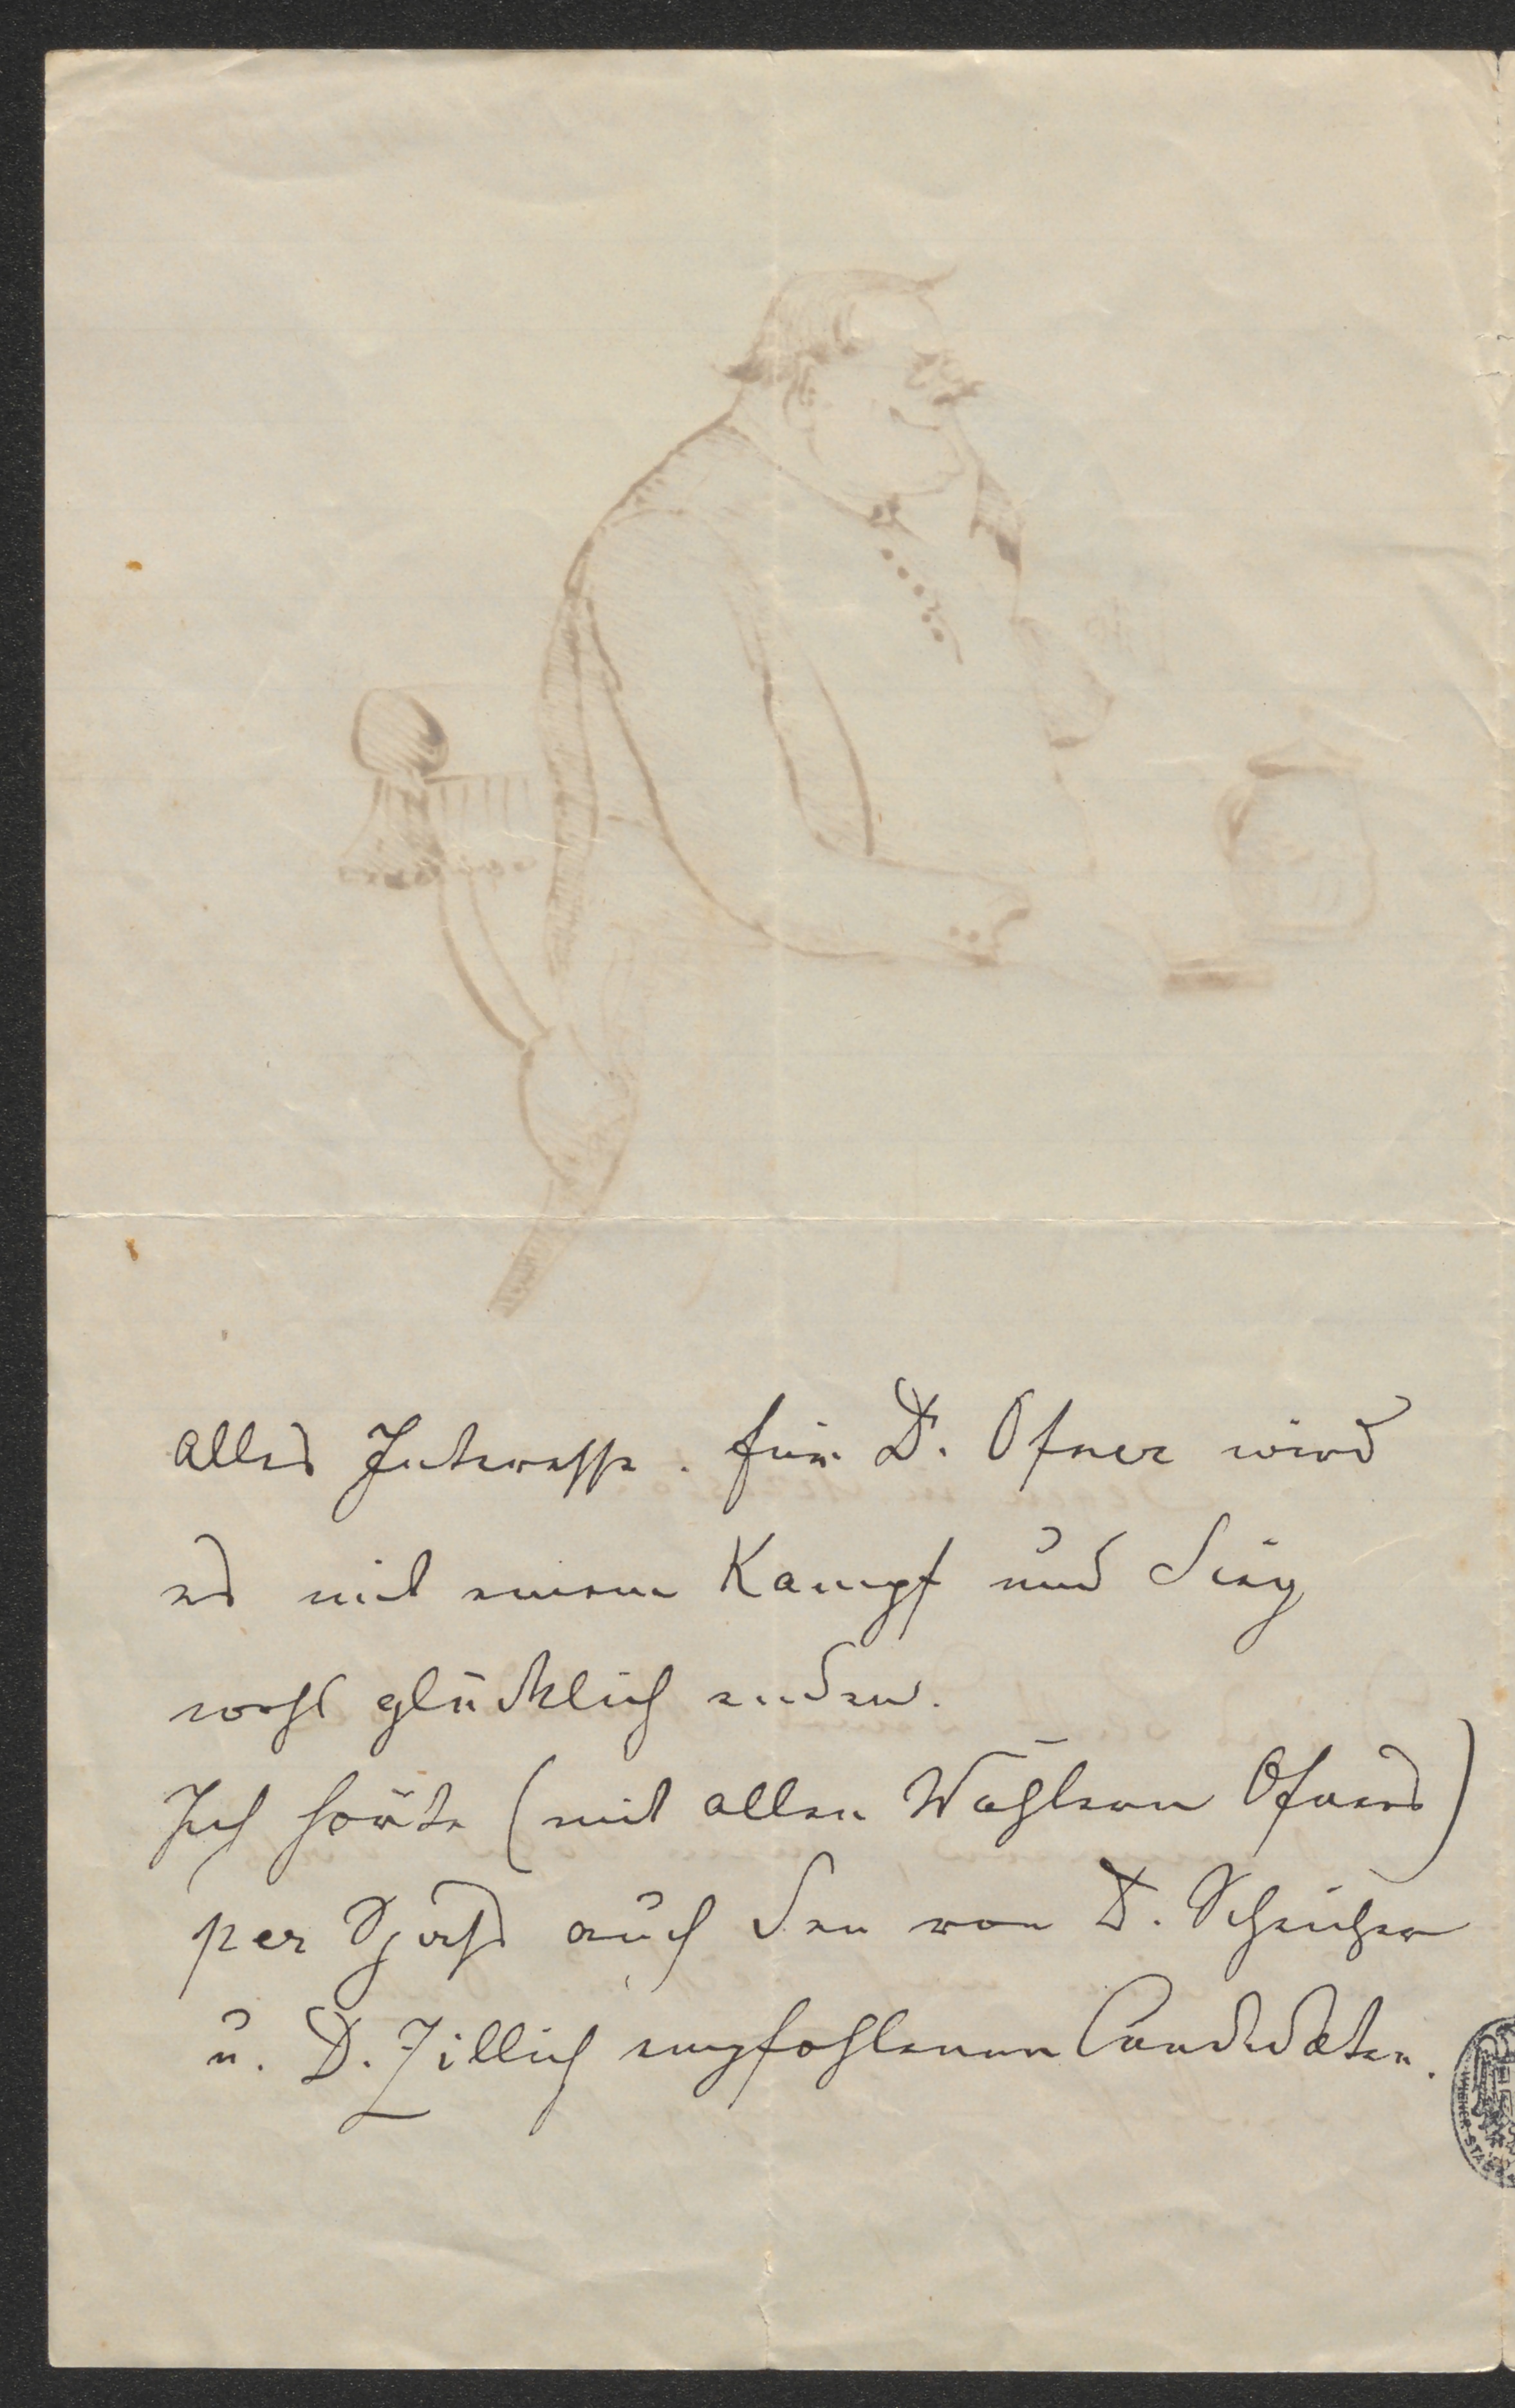 alles Interesse. Für D<sup>r</sup>. Ofner wird
es mit einem Kampf und Sieg
wohl glücklich enden.
Ich hörte (mit allen Wählern Ofners)
per auch den von D<sup>r</sup>. Scheicher
u. D<sup>r</sup>. Zillich empfohlenen Candidaten.
WIENER STADT